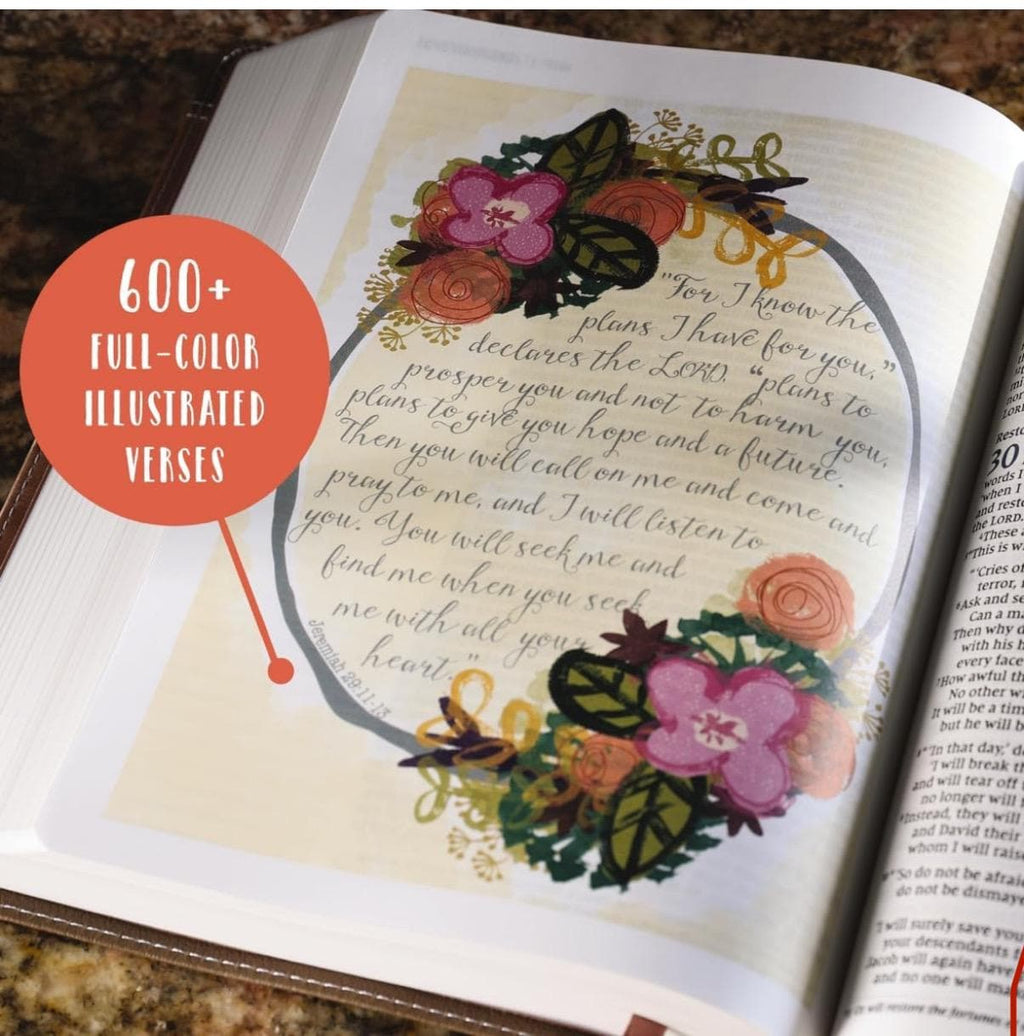 600+
FULL-COLOR
ILLUSTRATED
VERSES
"For I know the
plans I have for you,"
declares the LORD, "plans to
prosper you and not to harm you,
plans to give you hope and a future.
Then you will call on me and come and
pray to me, and I will listen to
you. You will seek me and
find me when you seek
me with all your
heart."
Jeremiah 29:11-13
30
words I
when I
and resto
the LORD.
These a
"This is wa
"'Cries of
terror, n
Ask and se
Can a ma
Then why d
with his h
every face
How awful th
No other w
It will be a tim
but he will b
"'In that day,' de
'I will break th
and will tear off t
no longer will f
Instead, they will
and David their
whom I will raise
"'So do not be afraid
do not be dismaye
'I will surely save you
your descendants f
Jacob will again have
and no one will ma
will restore the fortunes